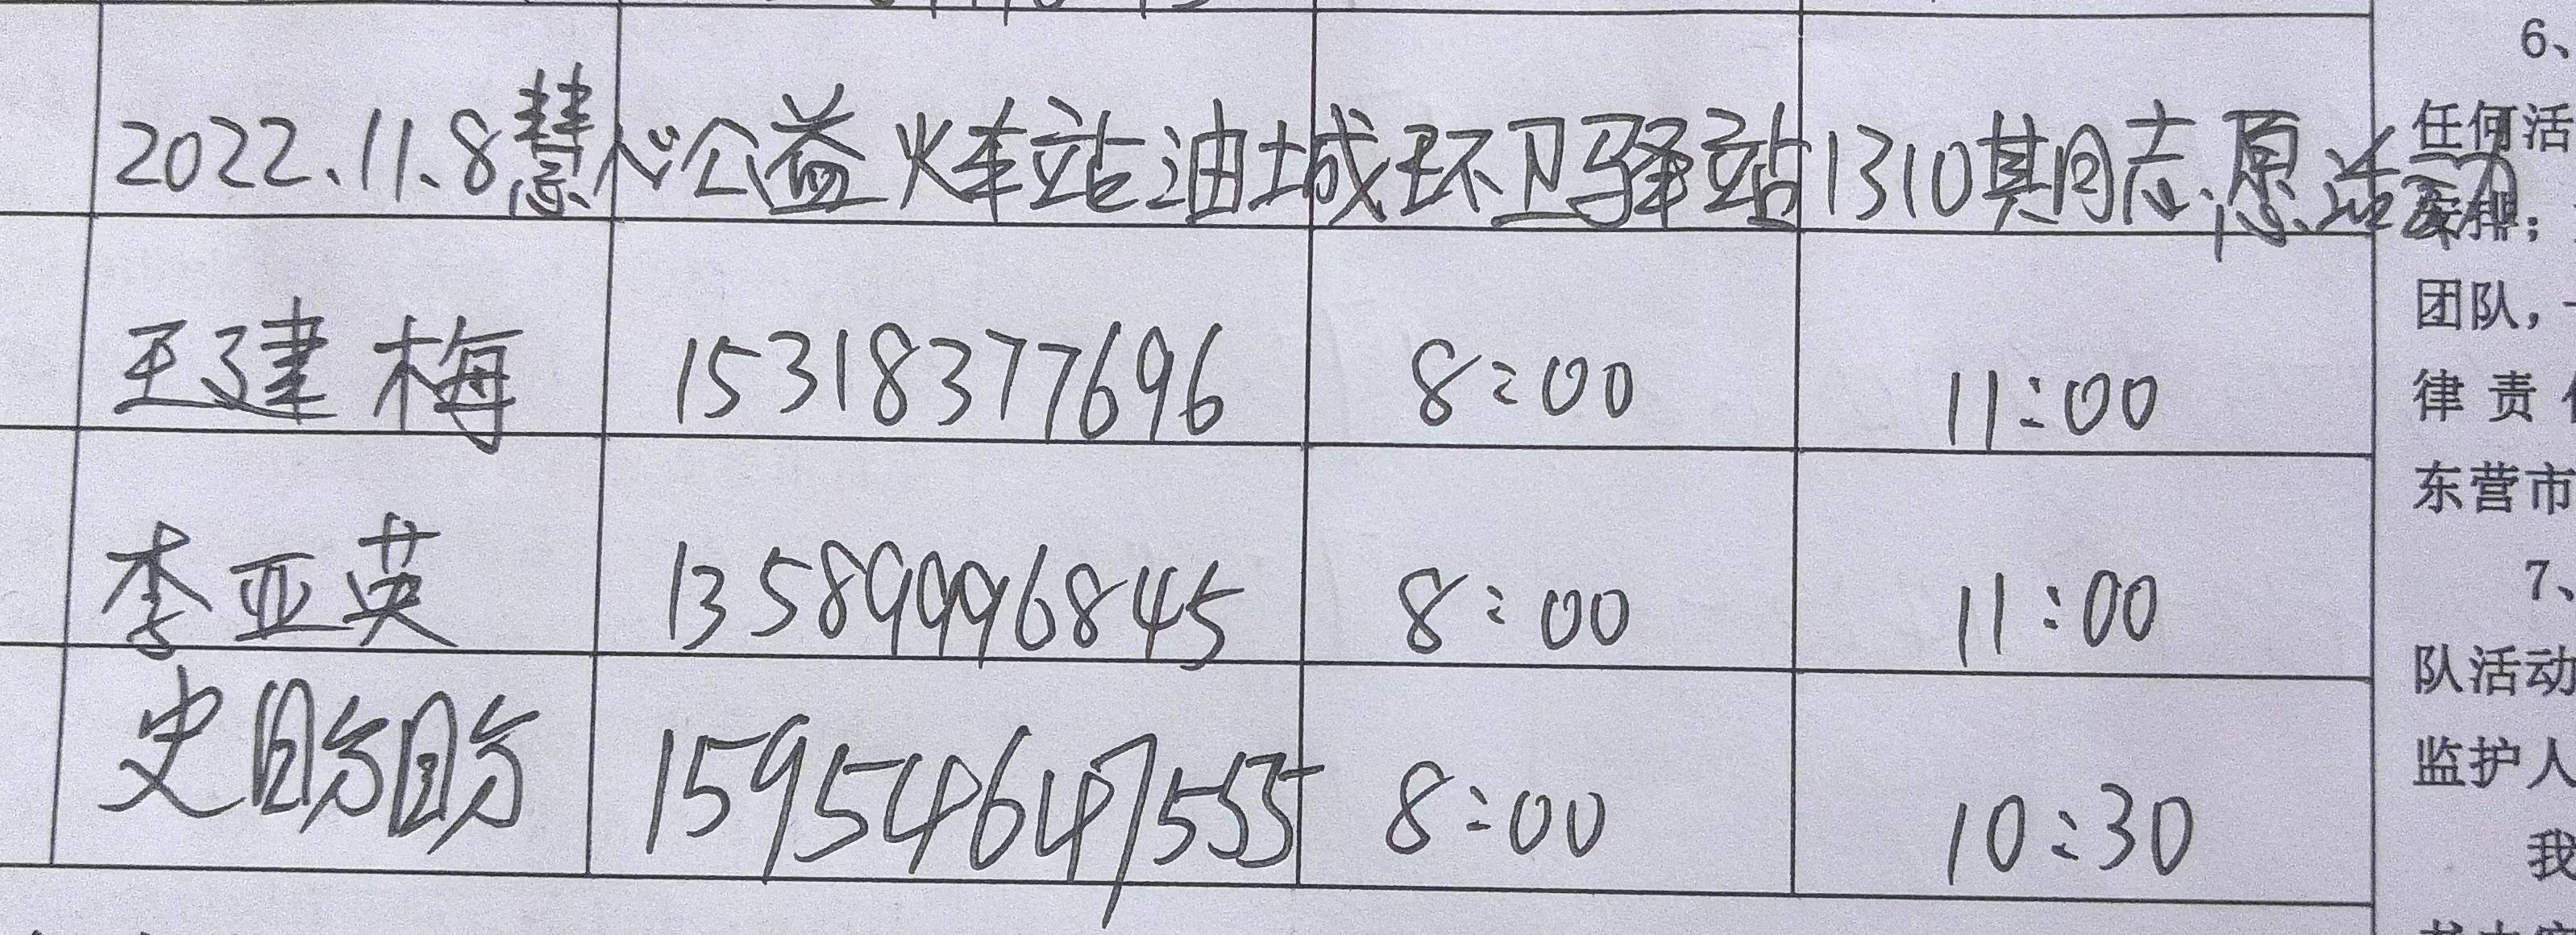 2022.11.8慧心公益烽站油城环卫驿站1310期志愿活动
王建梅 15318377696 8:00 11:00
李亚英 13589996845 8:00 11:00
史盼盼 15954647555 8:00 10:30
6、
任何活
安排;
团队,
律责
东营市
7、
队活动
监护人
我